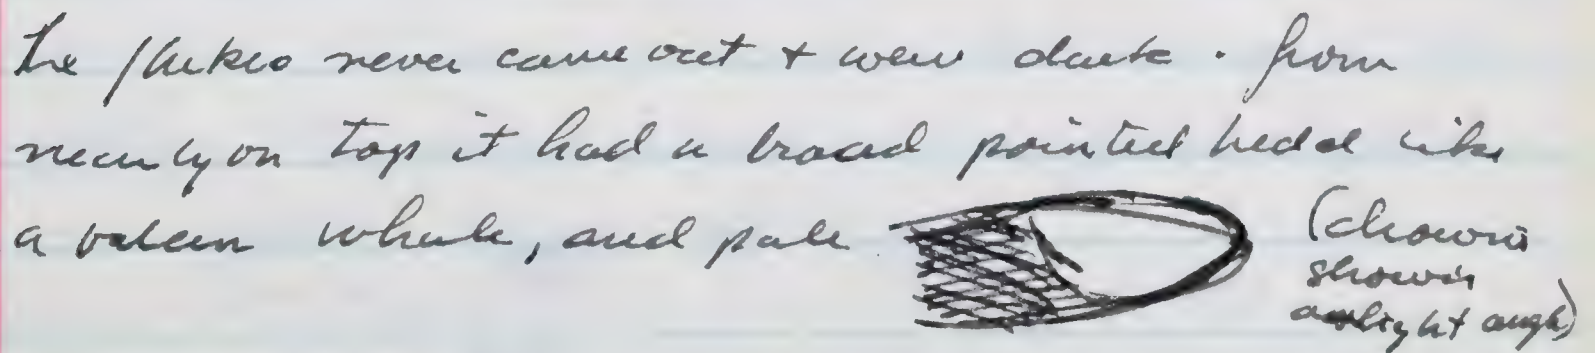 The flukes never came out + were dark. from
nearly on top it had a broad pointed head like
a baleen whale, and pale
(drawing
shown
a slight angle)